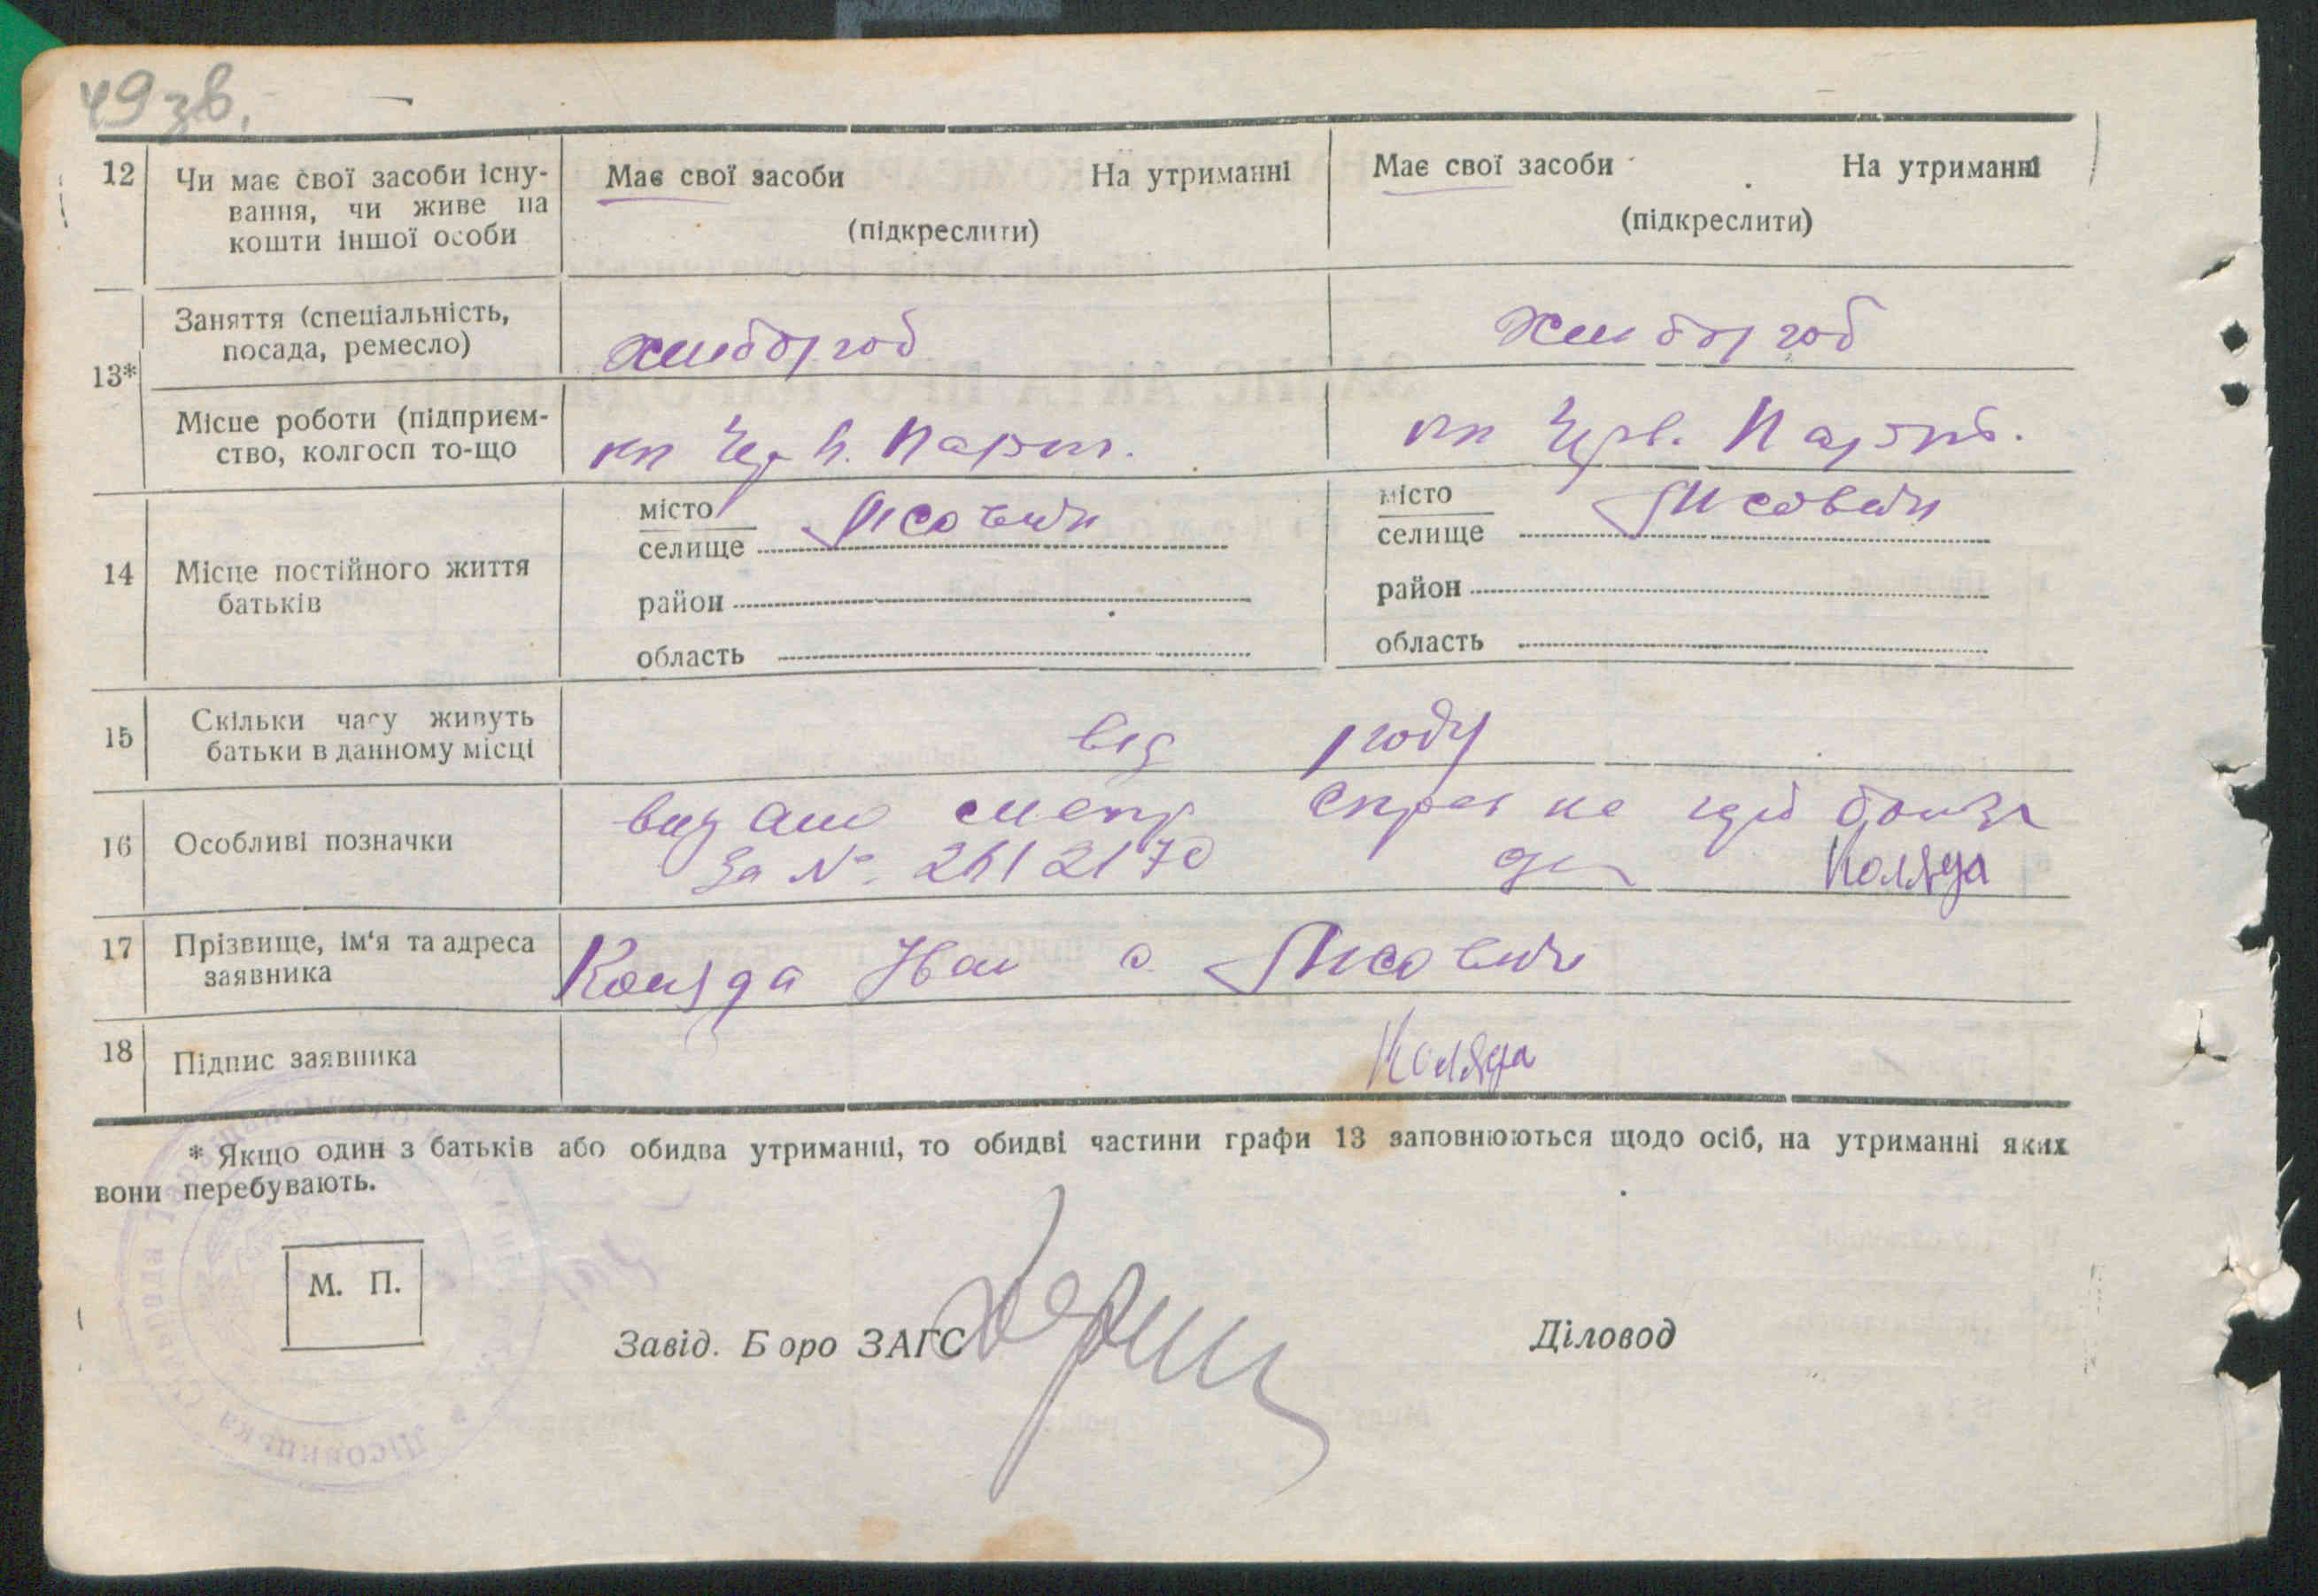 49 зв.
12 Чи має свої засоби існу- Має свої засоби На утриманні Має свої засоби На утриманні
вання, чи живе на (підкреслити) (підкреслити)
кошти іншої особи
13* Заняття (спеціальність, хлібороб хлібороб
посада, ремесло)
Місце роботи (підприєм- кп Черв. Парт. кп Черв. Парт.
ство, колгосп то-що
14 Місце постійного життя місто Лісовичи місто Лісовичи
батьків селище селище
район район
область область
15 Скільки часу живуть від роду
батьки в данному місці
16 Особливі позначки видано
За № 2612170 Коляда
17 Прізвище, ім'я та адреса Коляда Іван с. Лісовичи
заявника
18 Підпис заявника Коляда
* Якщо один з батьків або обидва утриманці, то обидві частини графи 13 заповнюються щодо осіб, на утриманні яких
вони перебувають.
М. П.
Завід. Б оро ЗАГС Діловод